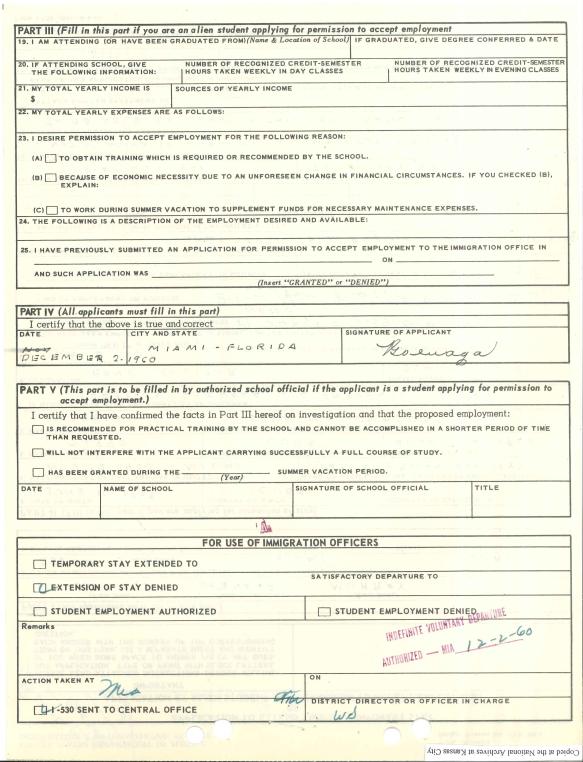 PART III (Fill in this part if you are an alien student applying for permission to accept employment
19. I AM ATTENDING (OR HAVE BEEN GRADUATED FROM)(Name & Location of School) IF GRADUATED, GIVE DEGREE CONFERRED & DATE
20. IF ATTENDING SCHOOL, GIVE THE FOLLOWING INFORMATION:
NUMBER OF RECOGNIZED CREDIT-SEMESTER HOURS TAKEN WEEKLY IN DAY CLASSES
NUMBER OF RECOGNIZED CREDIT-SEMESTER HOURS TAKEN WEEKLY IN EVENING CLASSES
21. MY TOTAL YEARLY INCOME IS
$
SOURCES OF YEARLY INCOME
22. MY TOTAL YEARLY EXPENSES ARE AS FOLLOWS:
23. I DESIRE PERMISSION TO ACCEPT EMPLOYMENT FOR THE FOLLOWING REASON:
(A) TO OBTAIN TRAINING WHICH IS REQUIRED OR RECOMMENDED BY THE SCHOOL.
(B) BECAUSE OF ECONOMIC NECESSITY DUE TO AN UNFORESEEN CHANGE IN FINANCIAL CIRCUMSTANCES. IF YOU CHECKED (B),
EXPLAIN:
(C) TO WORK DURING SUMMER VACATION TO SUPPLEMENT FUNDS FOR NECESSARY MAINTENANCE EXPENSES.
24. THE FOLLOWING IS A DESCRIPTION OF THE EMPLOYMENT DESIRED AND AVAILABLE:
25. I HAVE PREVIOUSLY SUBMITTED AN APPLICATION FOR PERMISSION TO ACCEPT EMPLOYMENT TO THE IMMIGRATION OFFICE IN
ON
AND SUCH APPLICATION WAS
(Insert "GRANTED" or "DENIED")
PART IV (All applicants must fill in this part)
I certify that the above is true and correct
DATE CITY AND STATE SIGNATURE OF APPLICANT
MIAMI - FLORIDA
DECEMBER 2-1960
PART V (This part is to be filled in by authorized school official if the applicant is a student applying for permission to
accept employment.)
I certify that I have confirmed the facts in Part III hereof on investigation and that the proposed employment:
IS RECOMMENDED FOR PRACTICAL TRAINING BY THE SCHOOL AND CANNOT BE ACCOMPLISHED IN A SHORTER PERIOD OF TIME
THAN REQUESTED.
WILL NOT INTERFERE WITH THE APPLICANT CARRYING SUCCESSFULLY A FULL COURSE OF STUDY.
HAS BEEN GRANTED DURING THE SUMMER VACATION PERIOD.
(Year)
DATE NAME OF SCHOOL SIGNATURE OF SCHOOL OFFICIAL TITLE
FOR USE OF IMMIGRATION OFFICERS
TEMPORARY STAY EXTENDED TO
SATISFACTORY DEPARTURE TO
EXTENSION OF STAY DENIED
STUDENT EMPLOYMENT AUTHORIZED STUDENT EMPLOYMENT DENIED
Remarks
INDEFINITE VOLUNTARY DEPARTURE
AUTHORIZED — MIA 12-2-60
ACTION TAKEN AT Mia ON
I-530 SENT TO CENTRAL OFFICE
DISTRICT DIRECTOR OR OFFICER IN CHARGE
Copied at the National Archives at Kansas City